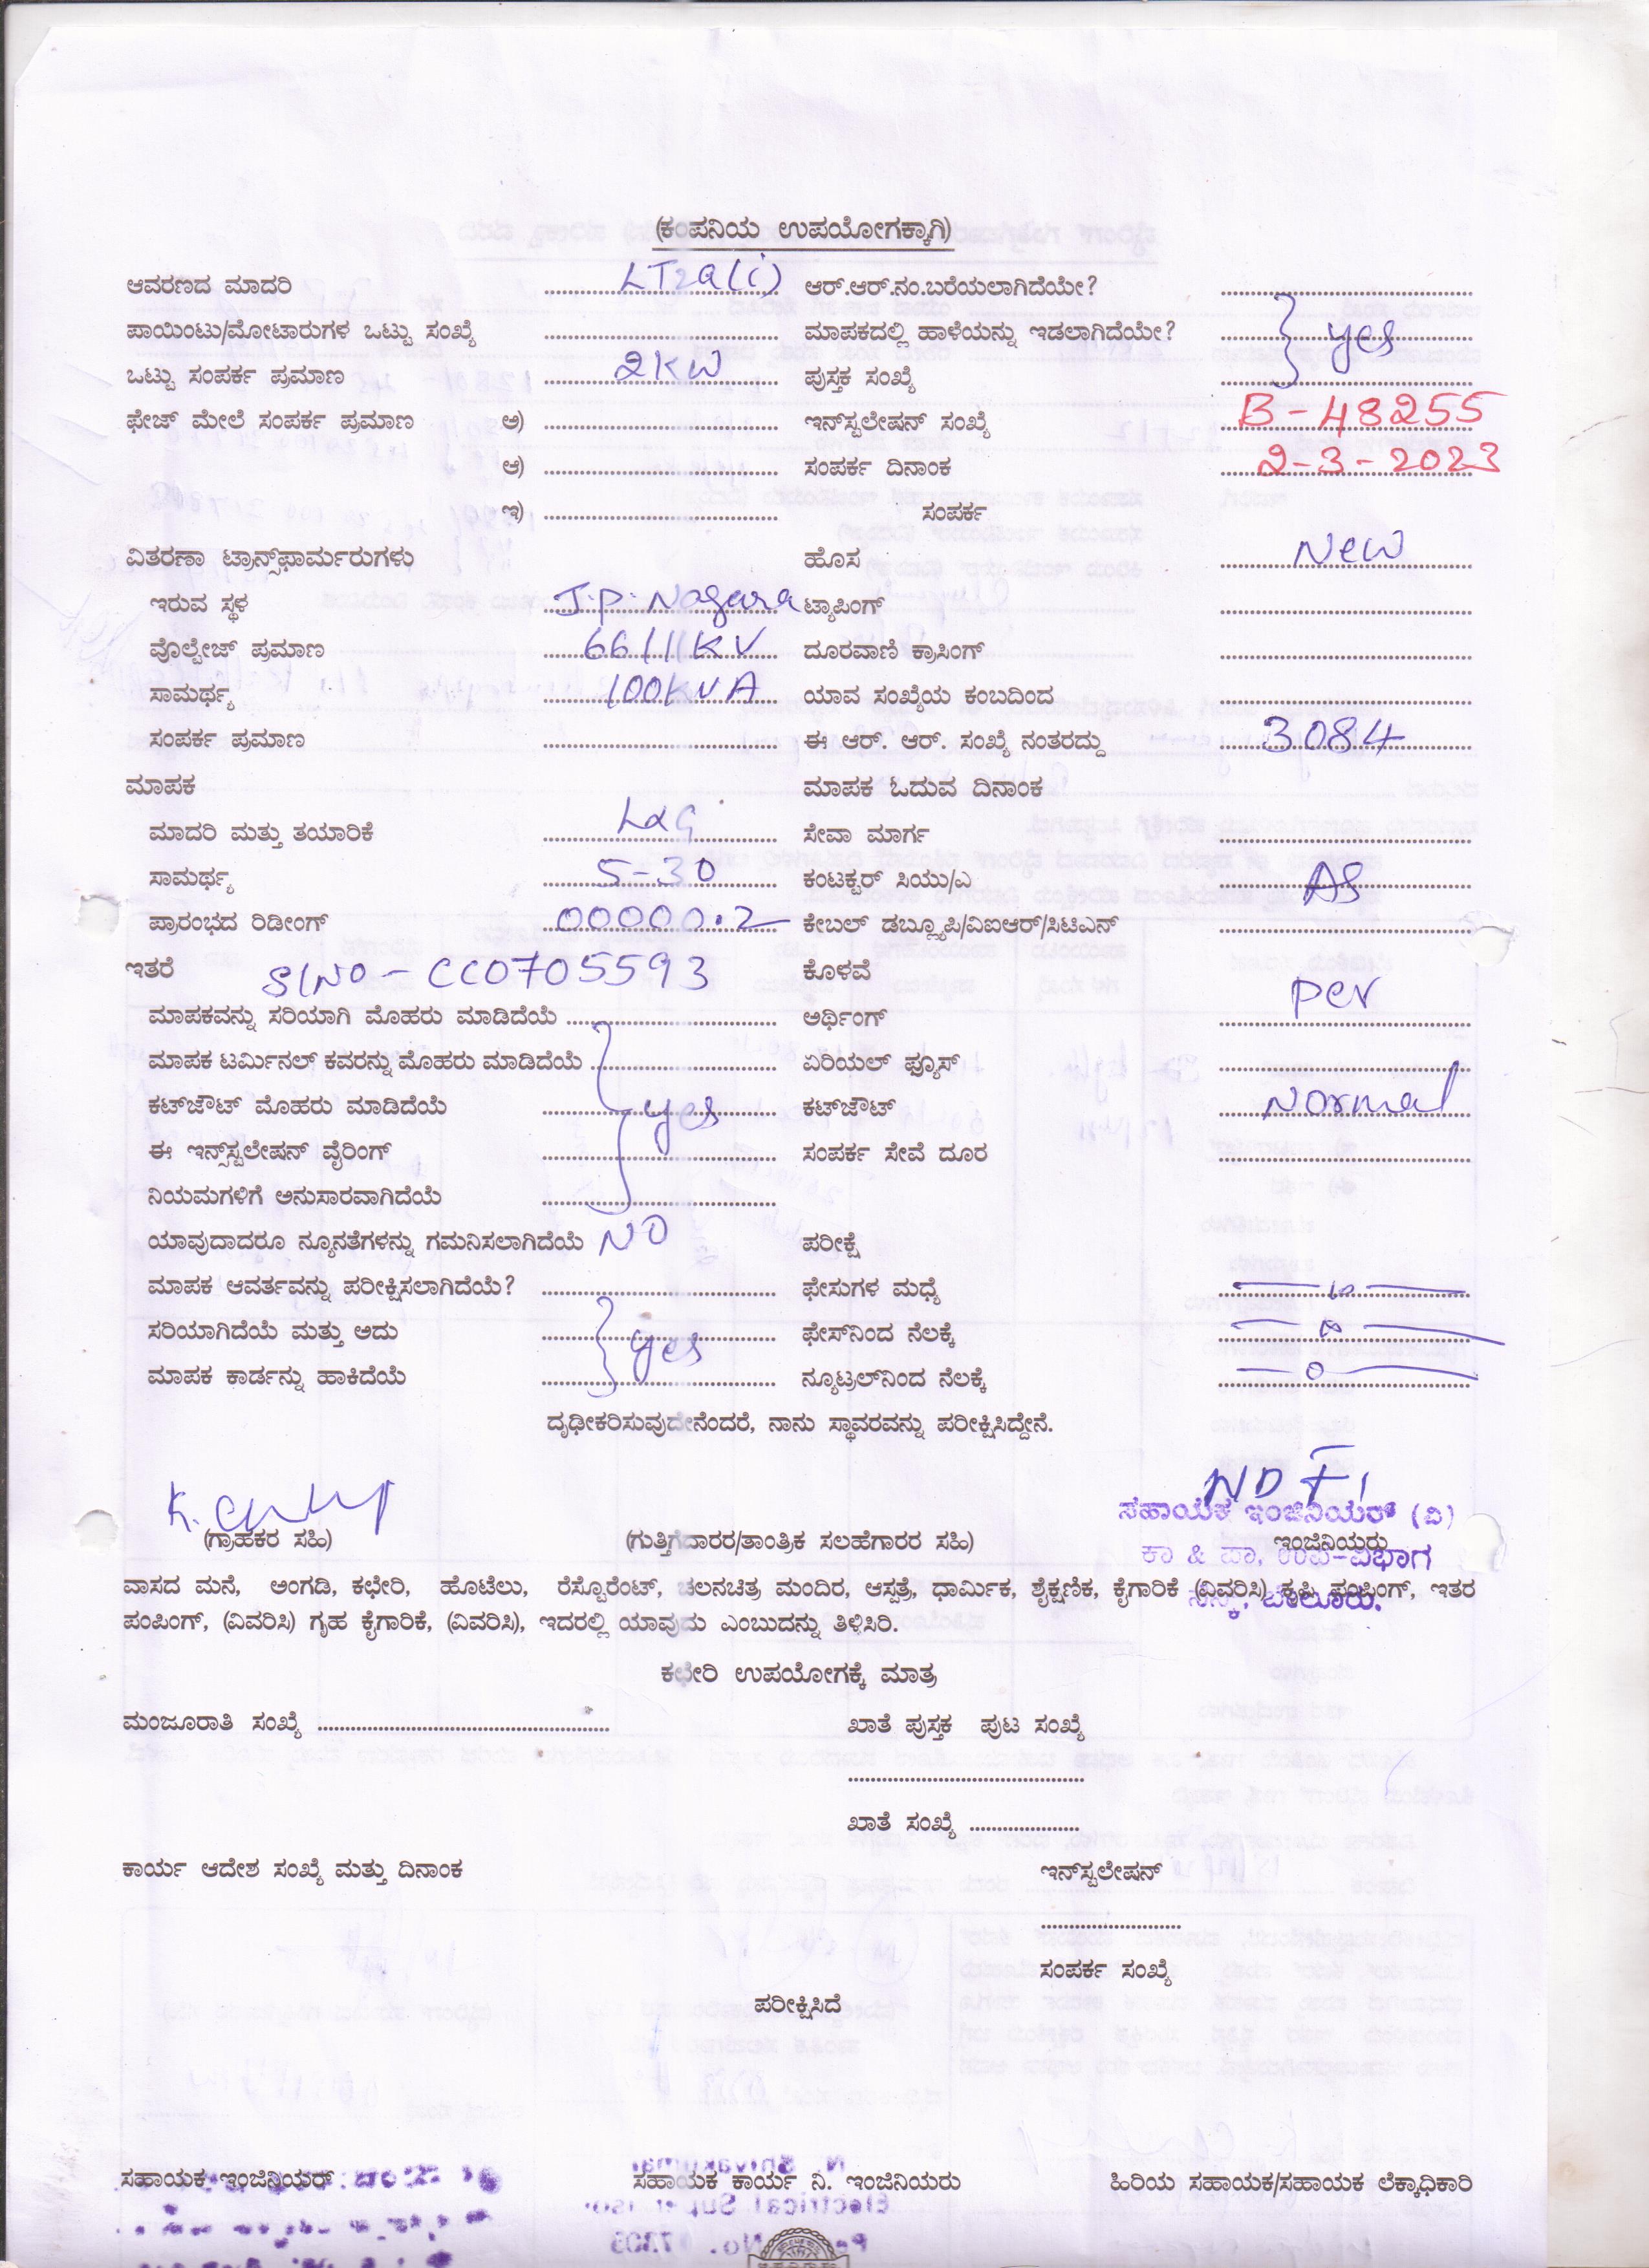 (ಕಂಪನಿಯ ಉಪಯೋಗಕ್ಕಾಗಿ)
ಆವರಣದ ಮಾದರಿ LT2a(i) ಆರ್.ಆರ್.ನಂ.ಬರೆಯಲಾಗಿದೆಯೇ?
ಪಾಯಿಂಟು/ಮೋಟಾರುಗಳ ಒಟ್ಟು ಸಂಖ್ಯೆ ಮಾಪಕದಲ್ಲಿ ಹಾಳೆಯನ್ನು ಇಡಲಾಗಿದೆಯೇ? yes
ಒಟ್ಟು ಸಂಪರ್ಕ ಪ್ರಮಾಣ 2KW ಪುಸ್ತಕ ಸಂಖ್ಯೆ
ಫೇಜ್ ಮೇಲೆ ಸಂಪರ್ಕ ಪ್ರಮಾಣ ಅ) ಇನ್‌ಸ್ಟಲೇಷನ್ ಸಂಖ್ಯೆ B-48255
ಆ) ಸಂಪರ್ಕ ದಿನಾಂಕ 2-3-2023
ಇ) ಸಂಪರ್ಕ
ವಿತರಣಾ ಟ್ರಾನ್ಸ್‌ಫಾರ್ಮರುಗಳು ಹೊಸ New
ಇರುವ ಸ್ಥಳ J.P. Nagara ಟ್ಯಾಪಿಂಗ್
ವೊಲ್ಟೇಜ್ ಪ್ರಮಾಣ 66/11KV ದೂರವಾಣಿ ಕ್ರಾಸಿಂಗ್
ಸಾಮರ್ಥ್ಯ 100KVA ಯಾವ ಸಂಖ್ಯೆಯ ಕಂಬದಿಂದ
ಸಂಪರ್ಕ ಪ್ರಮಾಣ ಈ ಆರ್. ಆರ್. ಸಂಖ್ಯೆ ನಂತರದ್ದು 3084
ಮಾಪಕ ಮಾಪಕ ಓದುವ ದಿನಾಂಕ
ಮಾದರಿ ಮತ್ತು ತಯಾರಿಕೆ L&G ಸೇವಾ ಮಾರ್ಗ
ಸಾಮರ್ಥ್ಯ 5-30 ಕಂಟಕ್ಟರ್ ಸಿಯು/ಎ AS
ಪ್ರಾರಂಭದ ರಿಡೀಂಗ್ 00000.2 ಕೇಬಲ್ ಡಬ್ಲ್ಯೂಪಿ/ವಿಐಆರ್/ಸಿಟಿಎಸ್
ಇತರೆ Sl No - CC0705593 ಕೊಳವೆ
ಮಾಪಕವನ್ನು ಸರಿಯಾಗಿ ಮೊಹರು ಮಾಡಿದೆಯೆ ಅರ್ಥಿಂಗ್ per
ಮಾಪಕ ಟರ್ಮಿನಲ್ ಕವರನ್ನು ಮೊಹರು ಮಾಡಿದೆಯೆ ಏರಿಯಲ್ ಫ್ಯೂಸ್
ಕಟ್‌ಔಟ್ ಮೊಹರು ಮಾಡಿದೆಯೆ yes ಕಟ್‌ಔಟ್ Normal
ಈ ಇನ್ಸ್‌ಸ್ಟಲೇಷನ್ ವೈರಿಂಗ್ ಸಂಪರ್ಕ ಸೇವೆ ದೂರ
ನಿಯಮಗಳಿಗೆ ಅನುಸಾರವಾಗಿದೆಯೆ
ಯಾವುದಾದರೂ ನ್ಯೂನತೆಗಳನ್ನು ಗಮನಿಸಲಾಗಿದೆಯೆ NO ಪರೀಕ್ಷೆ
ಮಾಪಕ ಆವರ್ತವನ್ನು ಪರೀಕ್ಷಿಸಲಾಗಿದೆಯೆ? ಫೇಸುಗಳ ಮಧ್ಯೆ
ಸರಿಯಾಗಿದೆಯೆ ಮತ್ತು ಅದು yes ಫೇಸ್‌ನಿಂದ ನೆಲಕ್ಕೆ
ಮಾಪಕ ಕಾರ್ಡನ್ನು ಹಾಕಿದೆಯೆ ನ್ಯೂಟ್ರಲ್‌ನಿಂದ ನೆಲಕ್ಕೆ
ದೃಢೀಕರಿಸುವುದೇನೆಂದರೆ, ನಾನು ಸ್ಥಾವರವನ್ನು ಪರೀಕ್ಷಿಸಿದ್ದೇನೆ.
ಸಹಾಯಕ ಇಂಜಿನಿಯರ್ (ವಿ)
(ಗ್ರಾಹಕರ ಸಹಿ) (ಗುತ್ತಿಗೆದಾರರ/ತಾಂತ್ರಿಕ ಸಲಹೆಗಾರರ ಸಹಿ) ಇಂಜಿನಿಯರು
ಕಾ & ಪಾ, ಉಪ-ವಿಭಾಗ
ವಾಸದ ಮನೆ, ಅಂಗಡಿ, ಕಛೇರಿ, ಹೊಟೆಲು, ರೆಸ್ಟೊರೆಂಟ್, ಚಲನಚಿತ್ರ ಮಂದಿರ, ಆಸ್ಪತ್ರೆ, ಧಾರ್ಮಿಕ, ಶೈಕ್ಷಣಿಕ, ಕೈಗಾರಿಕೆ (ವಿವರಿಸಿ) ಕೃಷಿ ಪಂಪಿಂಗ್, ಇತರ
ಪಂಪಿಂಗ್, (ವಿವರಿಸಿ) ಗೃಹ ಕೈಗಾರಿಕೆ, (ವಿವರಿಸಿ), ಇದರಲ್ಲಿ ಯಾವುದು ಎಂಬುದನ್ನು ತಿಳಿಸಿರಿ.
ಕಛೇರಿ ಉಪಯೋಗಕ್ಕೆ ಮಾತ್ರ
ಮಂಜೂರಾತಿ ಸಂಖ್ಯೆ ಖಾತೆ ಪುಸ್ತಕ ಪುಟ ಸಂಖ್ಯೆ
ಖಾತೆ ಸಂಖ್ಯೆ
ಕಾರ್ಯ ಆದೇಶ ಸಂಖ್ಯೆ ಮತ್ತು ದಿನಾಂಕ ಇನ್‌ಸ್ಟಲೇಷನ್
ಸಂಪರ್ಕ ಸಂಖ್ಯೆ
ಪರೀಕ್ಷಿಸಿದೆ
ಸಹಾಯಕ ಇಂಜಿನಿಯರ್ ಸಹಾಯಕ ಕಾರ್ಯ ನಿ. ಇಂಜಿನಿಯರು ಹಿರಿಯ ಸಹಾಯಕ/ಸಹಾಯಕ ಲೆಕ್ಕಾಧಿಕಾರಿ